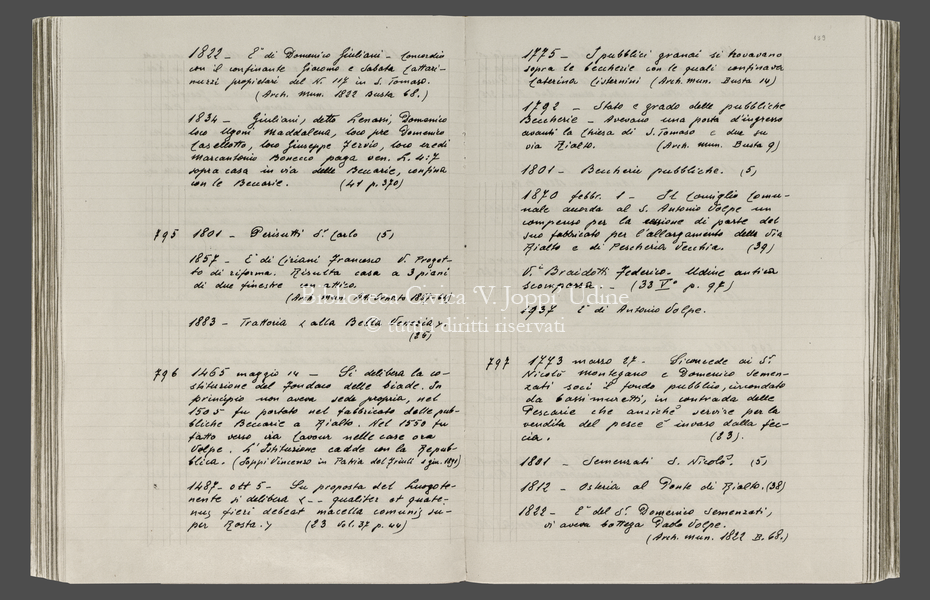 1822 – E' di Domenico Giuliani – Concordio
con il confinante Giacomo e Sabata Cattari-
nuzzi propietari del N. 117 in S. Tomaso.
(Arch. Mun. 1822 Busta 68.)
1834 – Giuliani, detto Lenassi, Domenico
loco Ugoni Maddalena, loco pre Domenico
Casellotto, loco Giuseppe Zervio, loco eredi
Marcantonio Bonecco paga ven. L. 4:7
sopra casa in via delle Beccarie, confina
con le Beccarie. (41 p. 370)
795 1801 – Perisutti S.r Carlo (5)
1857 – E' di Ciriani Francesco V. Proget-
to di riforma. Risulta casa a 3 piani
di due finestre con attico.
(Arch. mun.
1883 – Trattoria < alla Bella Venezia >.
(26)
796 1465 maggio 14 – Si delibera la co-
stituzione del Fondaco delle biade. In
principio non aveva sede propria, nel
1505 fu portato nel fabbricato delle pub-
bliche Beccarie a Rialto. Nel 1550 fu
fatto verso via Cavour nelle case ora
Volpe. L'Istituzione cadde con la Repub-
blica. (Joppi Vincenzo in Patria del Friuli 1891)
1487 – ott 5 – Su proposta del Luogote-
nente si delibera <-- qualiter et quate-
nus fieri debeat macella comunis su-
per Rosta. > (23 Vol. 37 p. 44)
129
1775 – I pubblici granai si trovavano
sopra le beccherie con le quali confinava
Caterina Cisternini (Arch. mun. Busta 14)
1792 – Stato e grado delle pubbliche
Beccherie – Avevano una porta d'ingresso
avanti la Chiesa di S. Tomaso e due su
via Rialto. (Arch. mun. Busta 9)
1801 – Beccherie pubbliche. (5)
1870 febbr. 1 – Il Consiglio Comu-
nale accorda al S. Antonio Volpe un
compenso per la cessione di parte del
suo fabbricato per l'allargamento della Via
Rialto e di Pescheria Vecchia. (39)
V.i Braidotti Federico – Udine antica
scomparsa – (33 V° p. 97)
1937 E' di Antonio Volpe.
797 1773 marzo 27 – Si concede ai S.ri
Nicolò Montegano e Domenico Semen-
zati soci il fondo pubblico, circondato
da bassi muretti, in contrada delle
Pescarie che anzichè servire per la
vendita del pesce è invaso dalla fec-
cia. (83).
1801 – Semenzati S. Nicolò. (5)
1812 – Osteria al Ponte di Rialto. (38)
1822 – E' del S.r Domenico Semenzati,
vi aveva bottega Paolo Volpe.
(Arch. mun. 1822 B. 68.)
Biblioteca Civica "V. Joppi" Udine
© tutti i diritti riservati